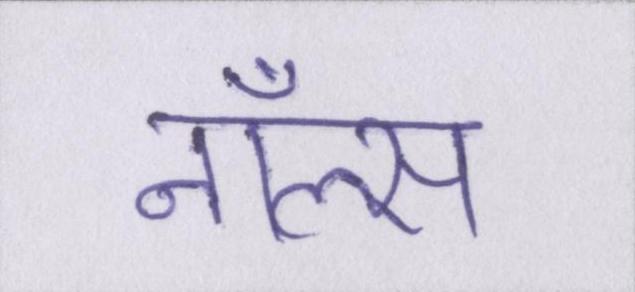 नाँल्स